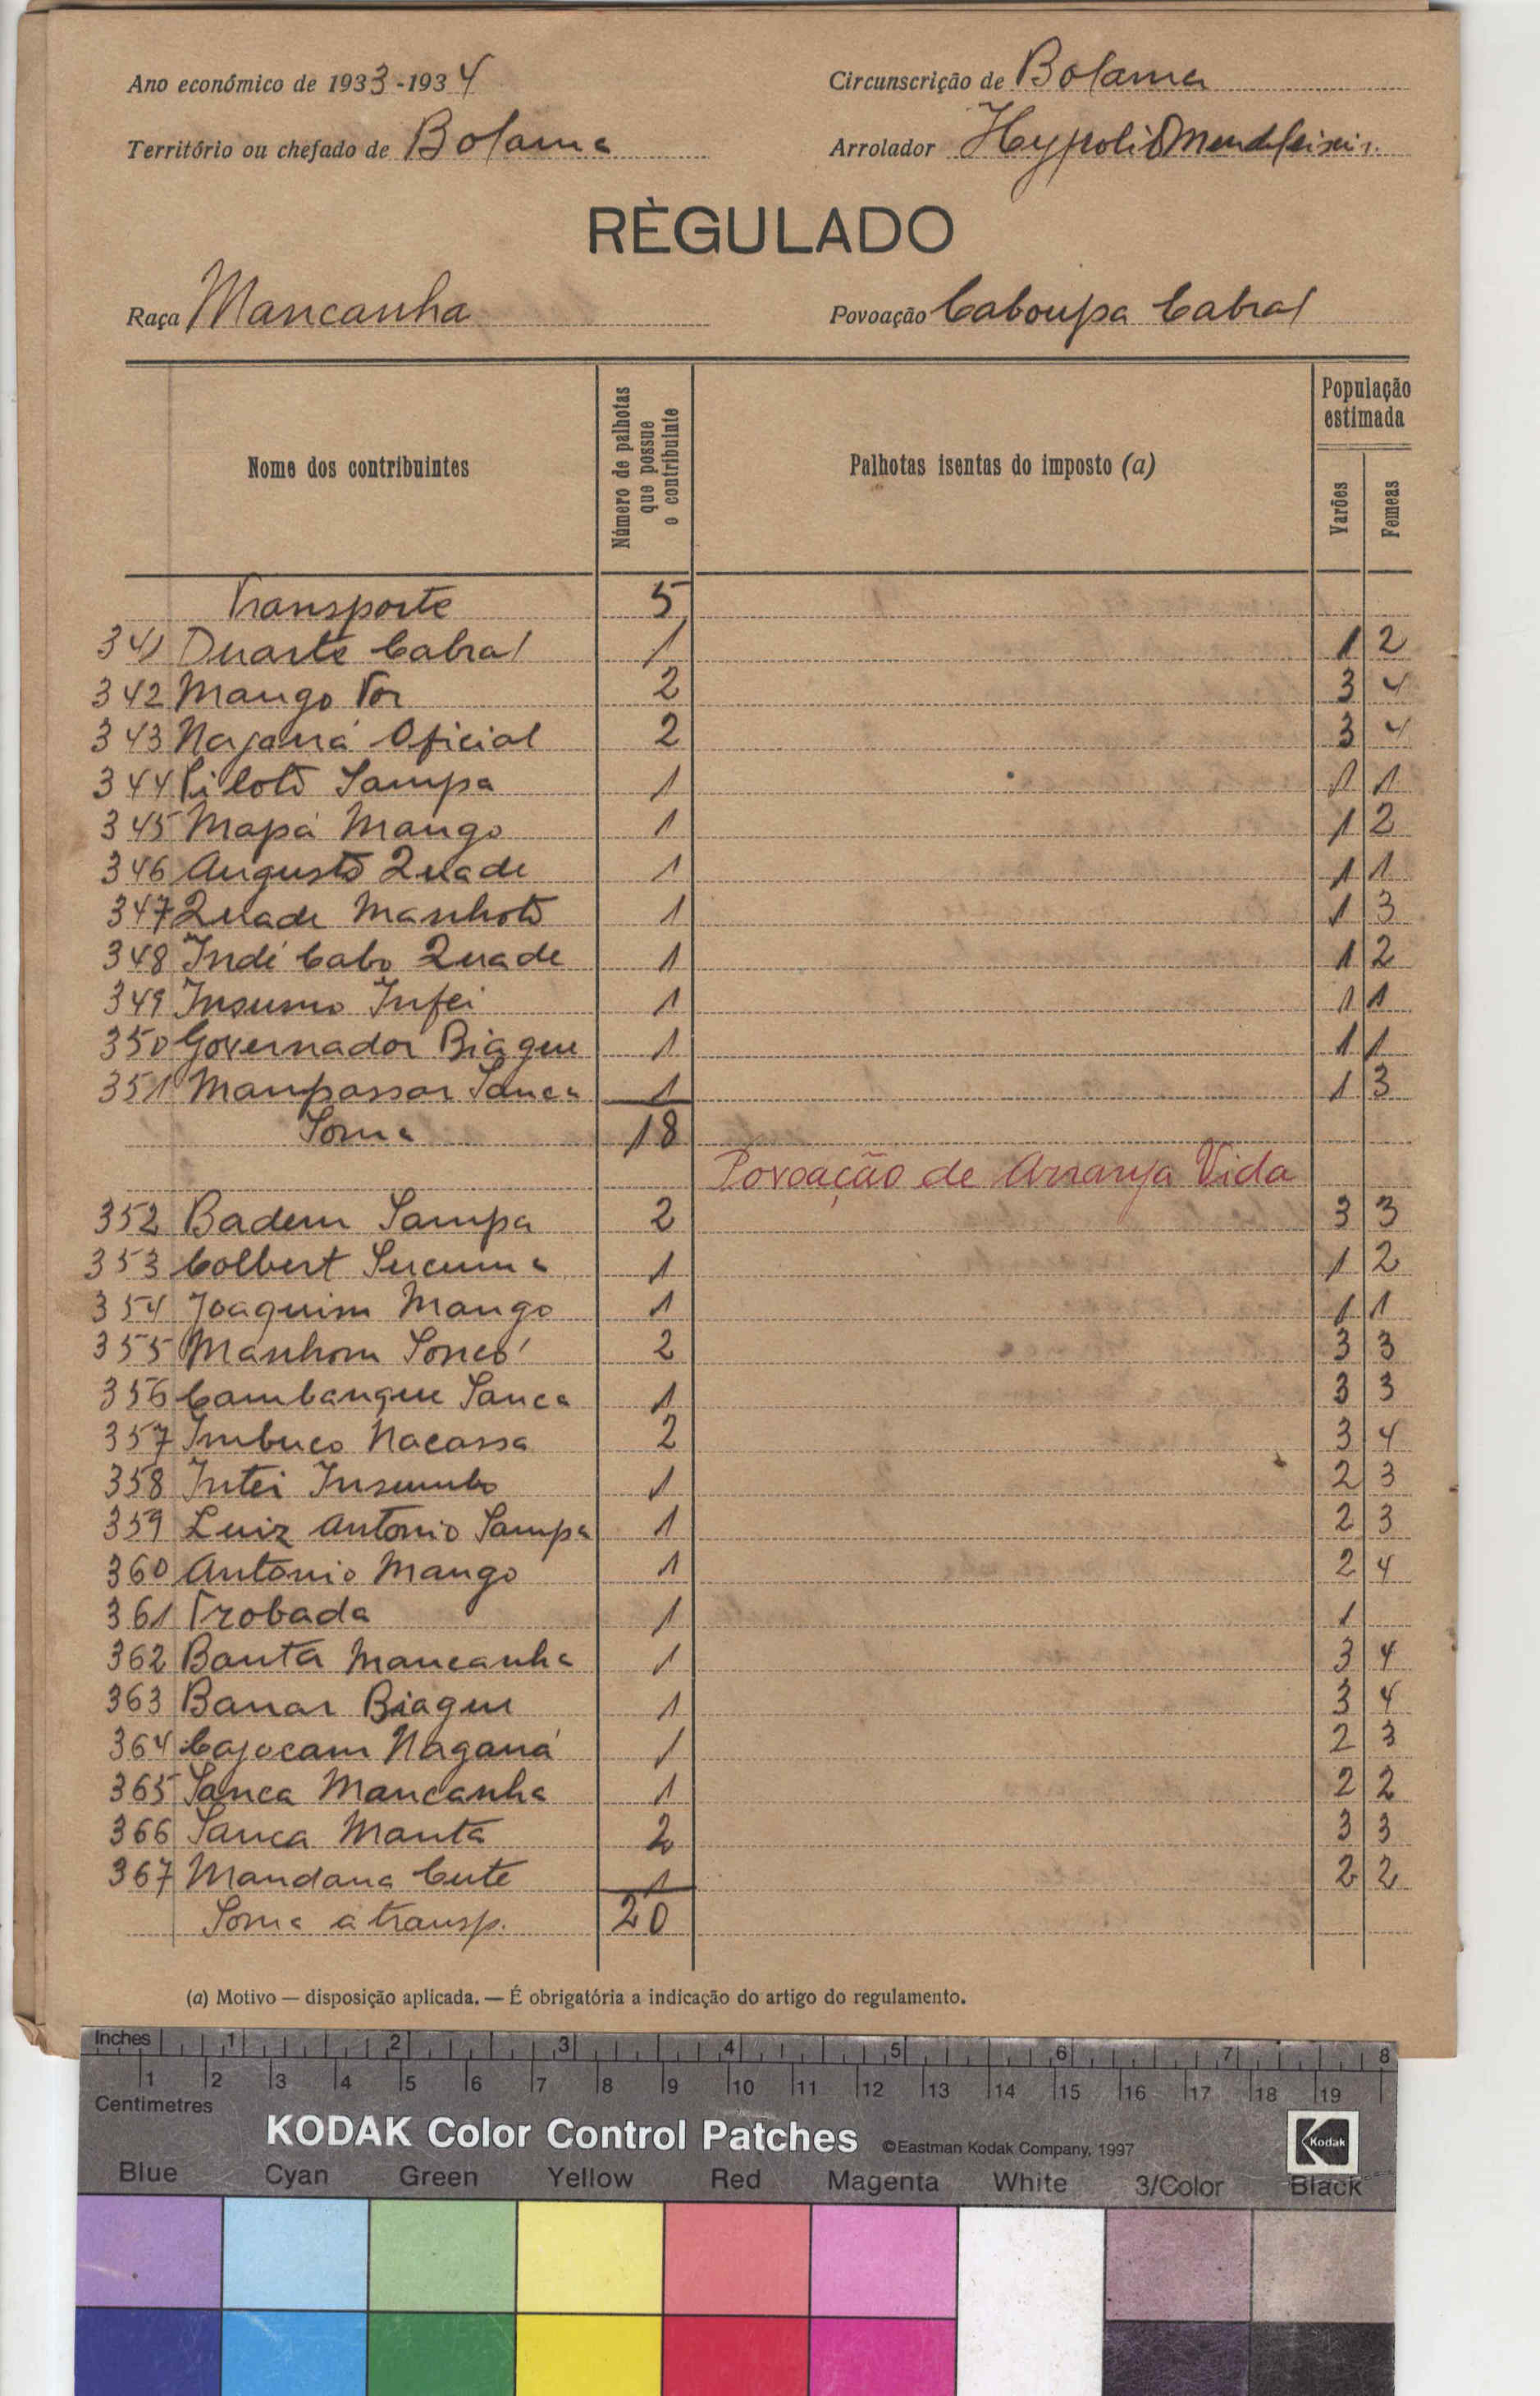 Ano económico de 1933-1934
Circunscrição de Bolama
Território ou chefado de Bolama
Arrolador Hypolito
RÈGULADO
Raça Mancanha
Povoação Caboupa Cabral
Nome dos contribuintes
Número de palhotas que possue o contribuinte
Palhotas isentas do imposto (a)
População estimada
Varões
Femeas
Transporte 5
341 Duarte Cabral 1 1 2
342 Mango Tor 2 3 4
343 Najaná Oficial 2 3 4
344 Piloto Sampa 1 1 1
345 Mapá Mango 1 1 2
346 Augusto Quade 1 1 1
347 Quade Manhoto 1 1 3
348 Indé Cabo Quade 1 1 2
349 Insumo Infei 1 1 1
350 Governador Biague 1 1 1
351 Manpassar Sanca 1 1 3
Soma 18
Povoação de Arranja Vida
352 Badem Sampa 2 3 3
353 Colbert Sucuma 1 1 2
354 Joaquim Mango 1 1 1
355 Manhom Soncó 2 3 3
356 Cambangue Sanca 1 3 3
357 Imbuco Nacassa 2 3 4
358 Intei Insumbo 1 2 3
359 Luiz Antonio Sampa 1 2 3
360 Antonio Mango 1 2 4
361 Trobada 1 1
362 Banta Mancanha 1 3 4
363 Banar Biague 1 3 4
364 Cajocam Naganá 1 2 3
365 Sanca Mancanha 1 2 2
366 Sanca Manta 2 3 3
367 Mandana Cute 1 2 2
Soma a transp. 20
(a) Motivo — disposição aplicada. — É obrigatória a indicação do artigo do regulamento.
Inches 1 2 3 4 5 6 7 8
1 2 3 4 5 6 7 8 9 10 11 12 13 14 15 16 17 18 19
Centimetres
KODAK Color Control Patches ©Eastman Kodak Company, 1997 Kodak
Blue Cyan Green Yellow Red Magenta White 3/Color Black